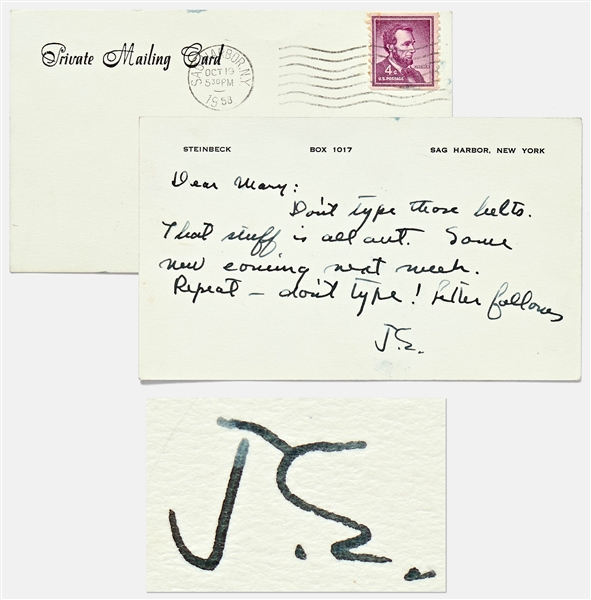 Private Mailing Card
SAG HARBOR, N.Y.
OCT 19
5 30 PM
1958
4¢
U.S. POSTAGE
STEINBECK BOX 1017 SAG HARBOR, NEW YORK
Dear Mary:
Don't type those belts.
That stuff is all out. Some
new coming next week.
Repeat — don't type! Letter follows
J.S.
J.S.